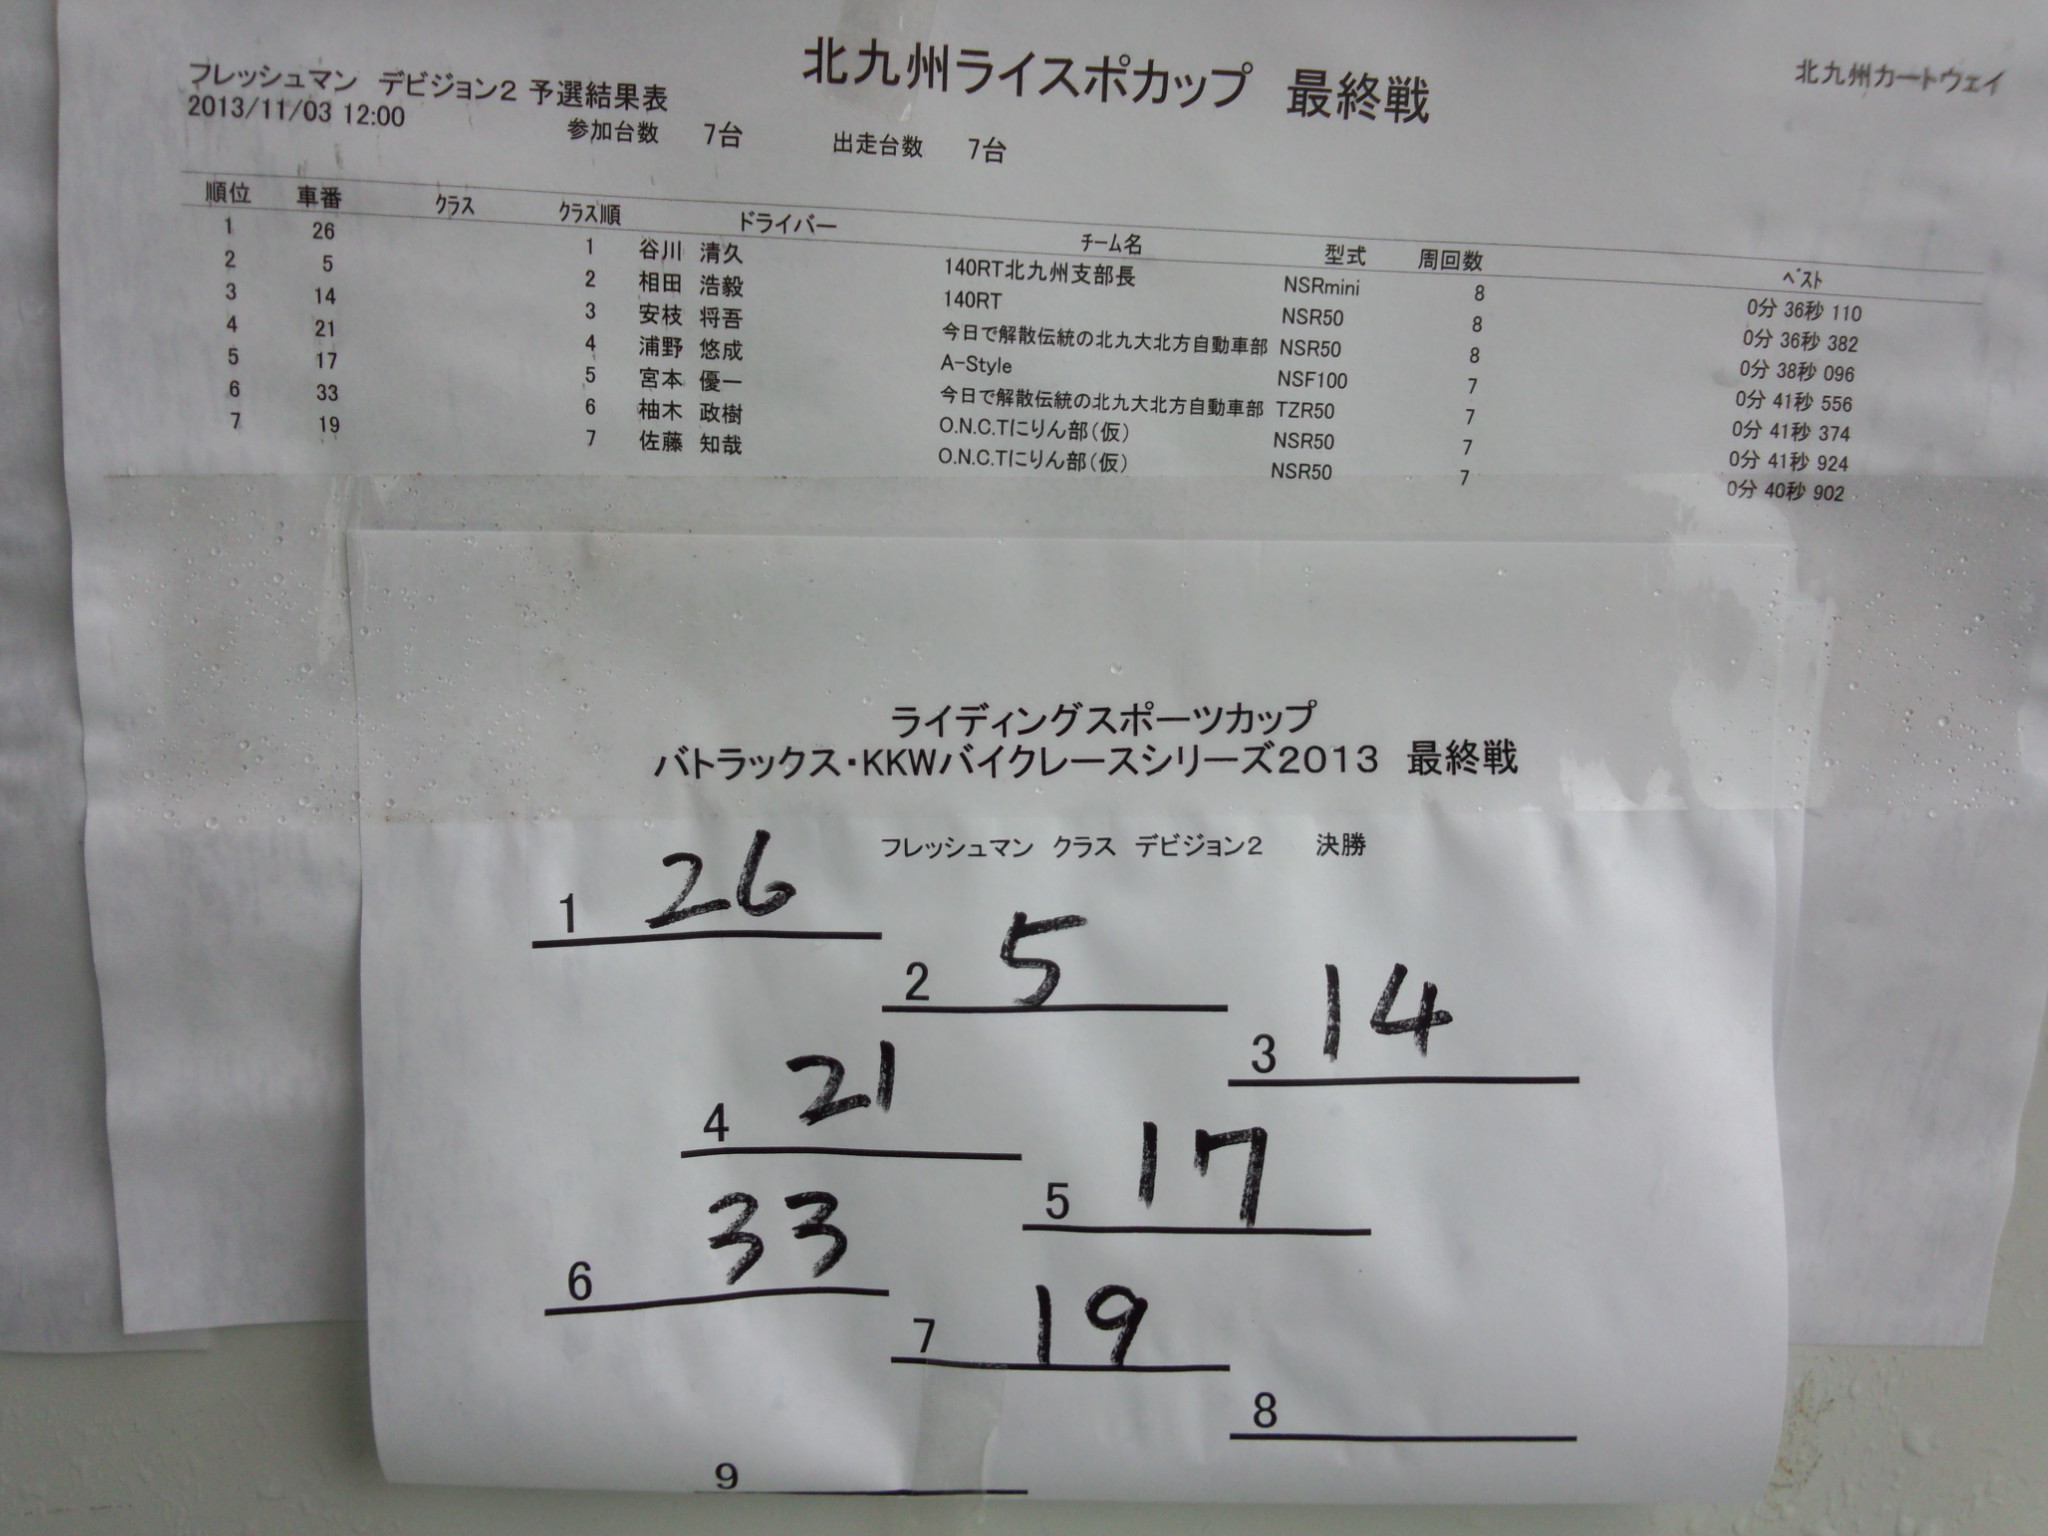 北九州ライスポカップ 最終戦
北九州カートウェイ
フレッシュマン デビジョン2 予選結果表
2013/11/03 12:00
参加台数 7台 出走台数 7台
順位 車番 クラス クラス順 ドライバー チーム名 型式 周回数 ベスト
1 26 1 谷川 清久 140RT北九州支部長 NSRmini 8 0分 36秒 110
2 5 2 相田 浩毅 140RT NSR50 8 0分 36秒 382
3 14 3 安枝 将吾 今日で解散伝統の北九大北方自動車部 NSR50 8 0分 38秒 096
4 21 4 浦野 悠成 A-Style NSF100 7 0分 41秒 556
5 17 5 宮本 優一 今日で解散伝統の北九大北方自動車部 TZR50 7 0分 41秒 374
6 33 6 柚木 政樹 O.N.C.Tにりん部(仮) NSR50 7 0分 41秒 924
7 19 7 佐藤 知哉 O.N.C.Tにりん部(仮) NSR50 7 0分 40秒 902
ライディングスポーツカップ
バトラックス・KKWバイクレースシリーズ2013 最終戦
フレッシュマン クラス デビジョン2 決勝
1 26
2 5
3 14
4 21
5 17
6 33
7 19
8
9